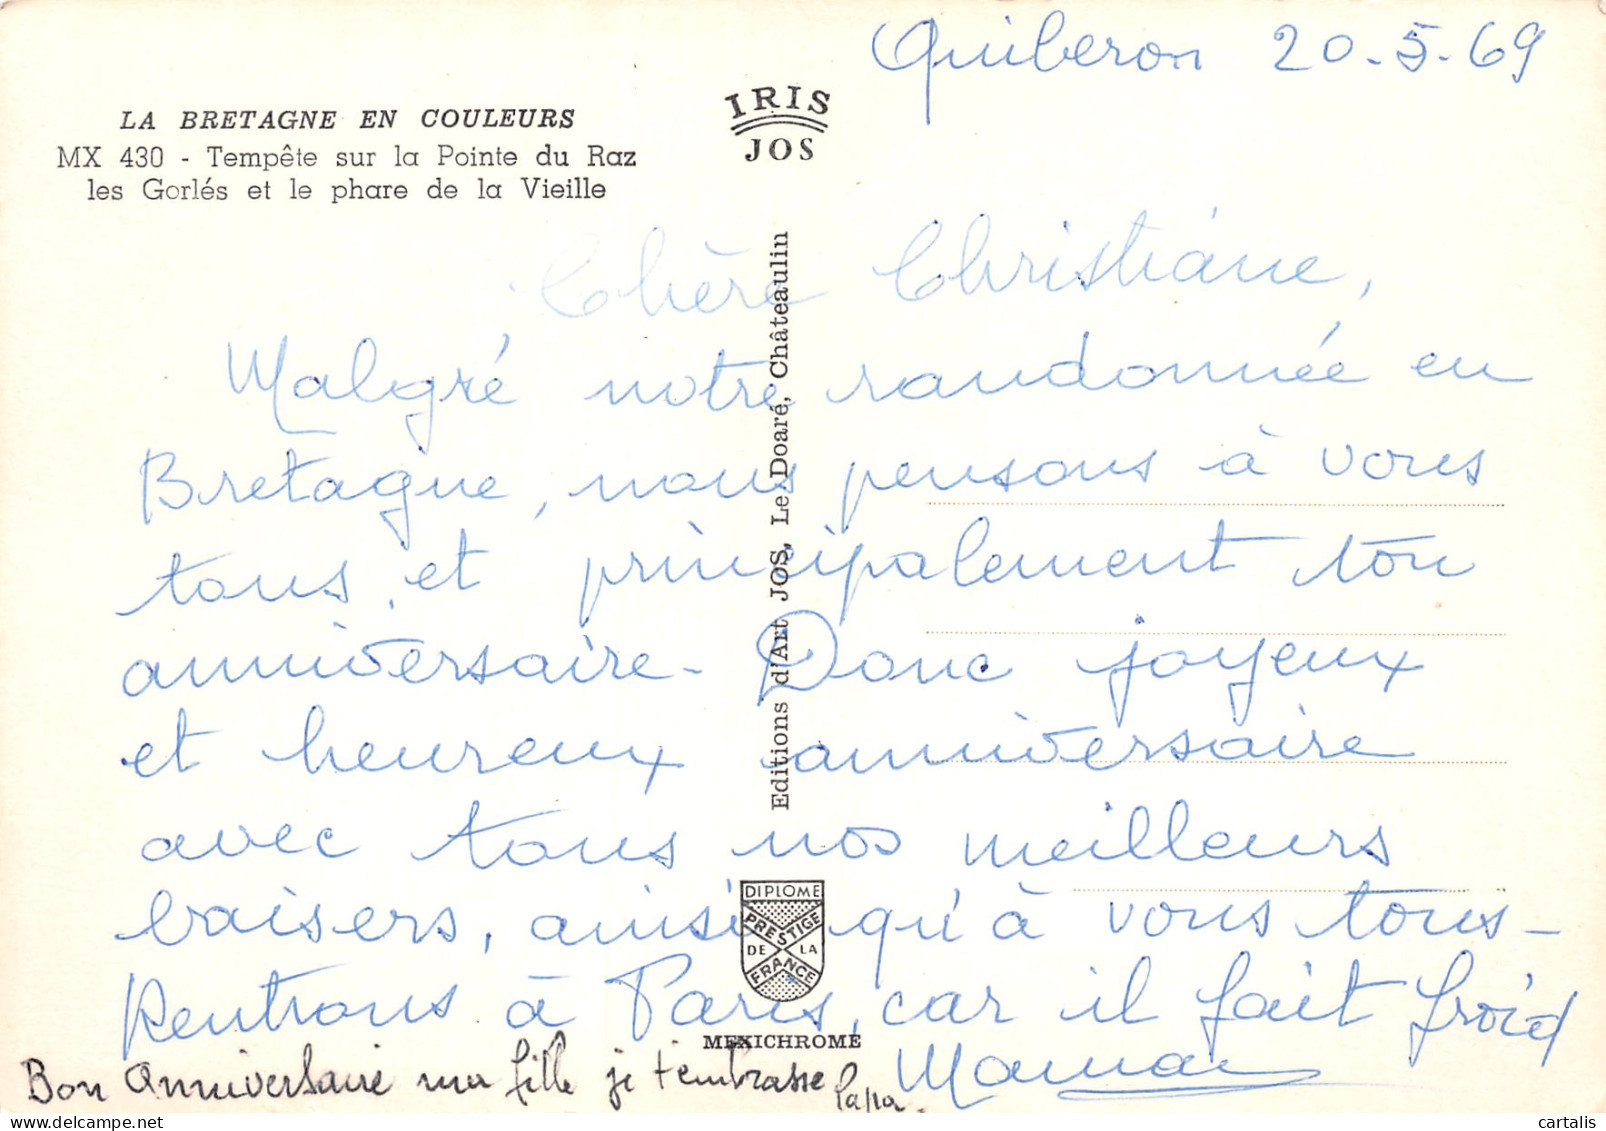 Quiberon 20.5.69
IRIS
JOS
LA BRETAGNE EN COULEURS
MX 430 - Tempête sur la Pointe du Raz
les Gorlés et le phare de la Vieille
Chère Christiane,
Malgré notre randonnée en
Bretagne, nous pensons à vous
tous, et principalement ton
anniversaire - Donc joyeux
et heureux anniversaire
avec tous nos meilleurs
baisers, ainsi qu'à vous tous -
Rentrons à Paris, car il fait froid
Maman
Bon Anniversaire ma fille je t'embrasse Papa.
Editions d'Art JOS, Le Doaré, Châteaulin
DIPLOME
PRESTIGE
DE LA
FRANCE
MEXICHROME
cartalis